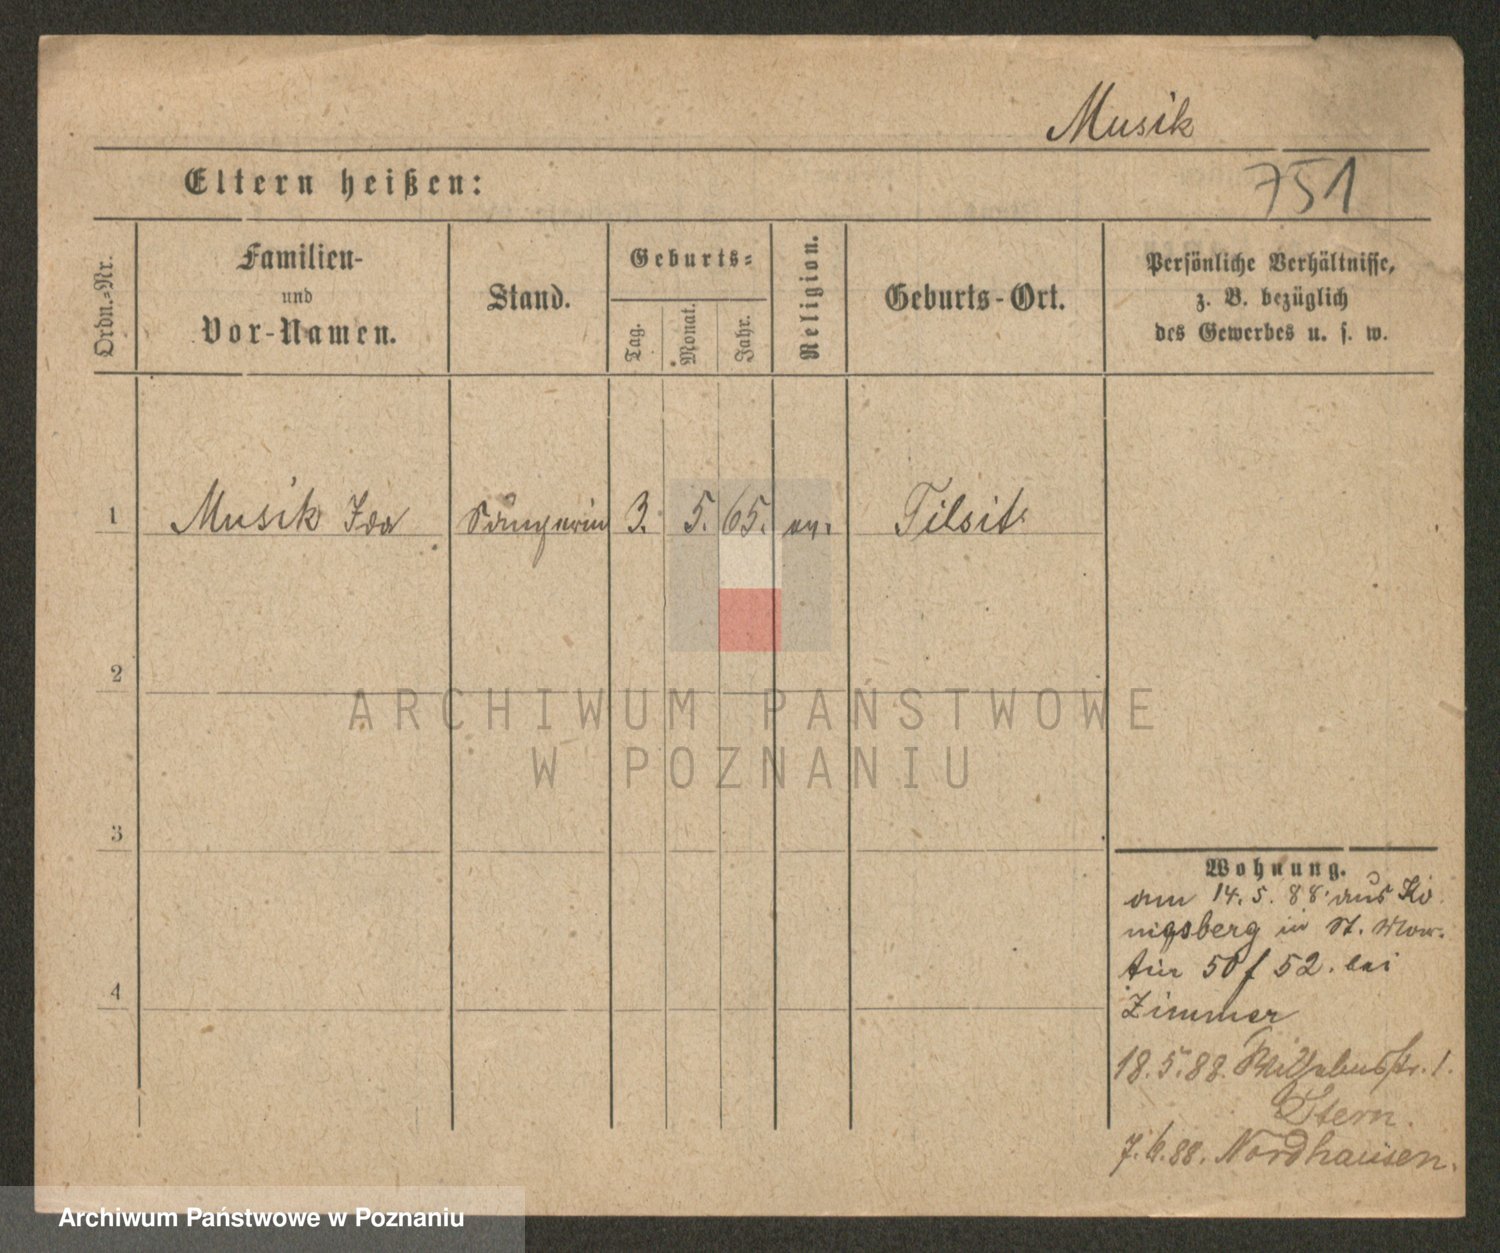 Musik
Eltern heißen:
751
Ordn.-Nr.
Familien-
und
Vor-Namen.
Stand.
Geburts-
Tag.
Monat.
Jahr.
Religion.
Geburts-Ort.
Persönliche Verhältnisse,
z. B. bezüglich
des Gewerbes u. s. w.
1 Musik Ida Sängerin 3. 5. 65. ev. Tilsit
2
3
4
Wohnung.
am 14. 5. 88. aus Kö
nigsberg in St. Mar-
tin 50 / 52. bei
Zimmer
18. 5. 88. Wilhelmsstr. 1.
Stern.
7. 6. 88. Nordhausen.
ARCHIWUM PAŃSTWOWE
W POZNANIU
Archiwum Państwowe w Poznaniu